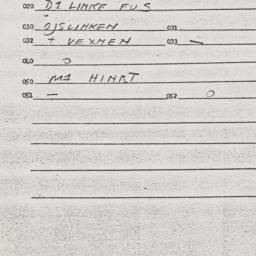 020 D1 LINKE FUS
030 OJSLINKEN 031
032 + VEXMEN 033 —
040 O
050 M1 HINKT
051 — 052 O